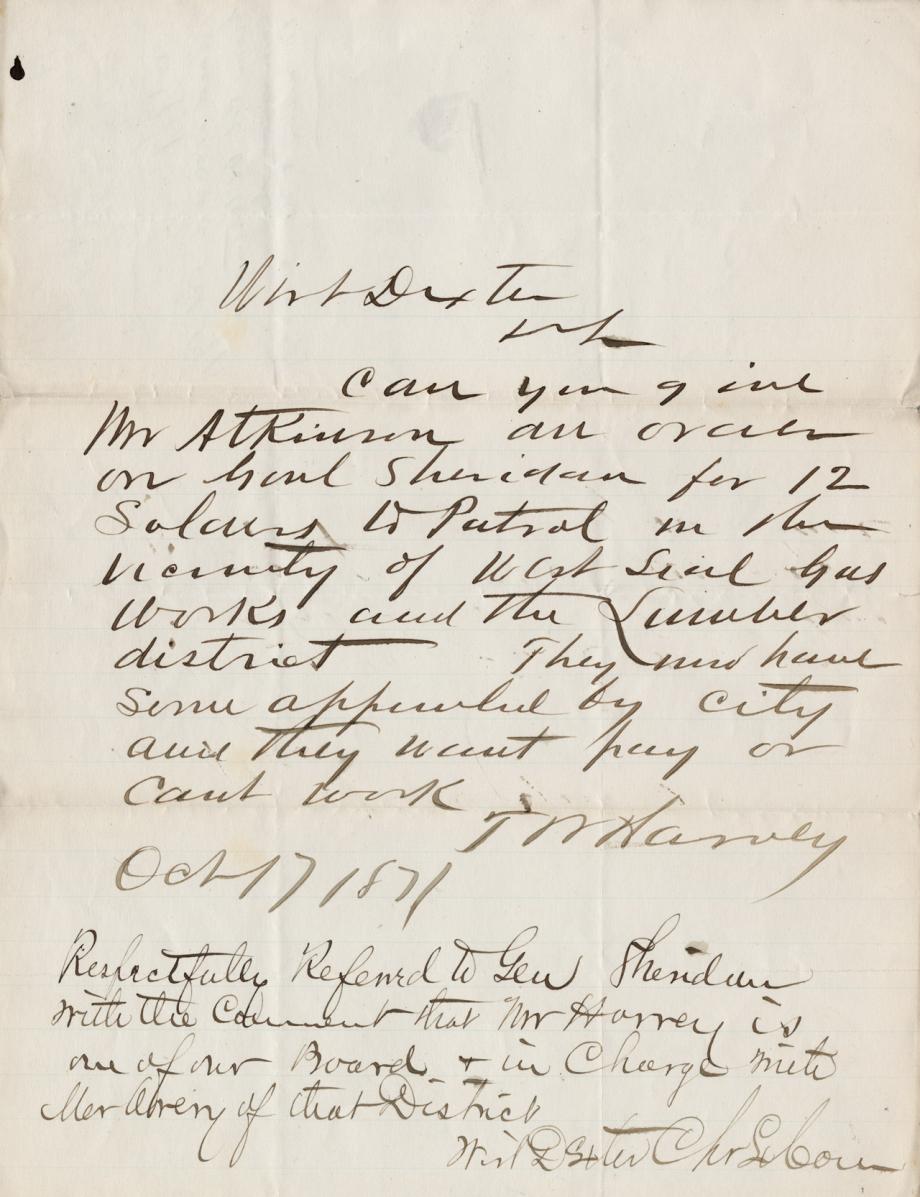 Wirt Dexter
Can you give
Mr Atkinson an order
on Genl Sheridan for 12
Soldiers to Patrol in the
vicinity of West Side Gas
Works and the Lumber
district They now have
some appointed by City
and they want pay or
Cant work
T W Harvey
Oct 17 1871
Respectfully Referred to Gen Sheridan
with the Comment that Mr Harvey is
one of our Board & in Charge with
Mr Avery of that District
Wirt Dexter Chr Ex Com